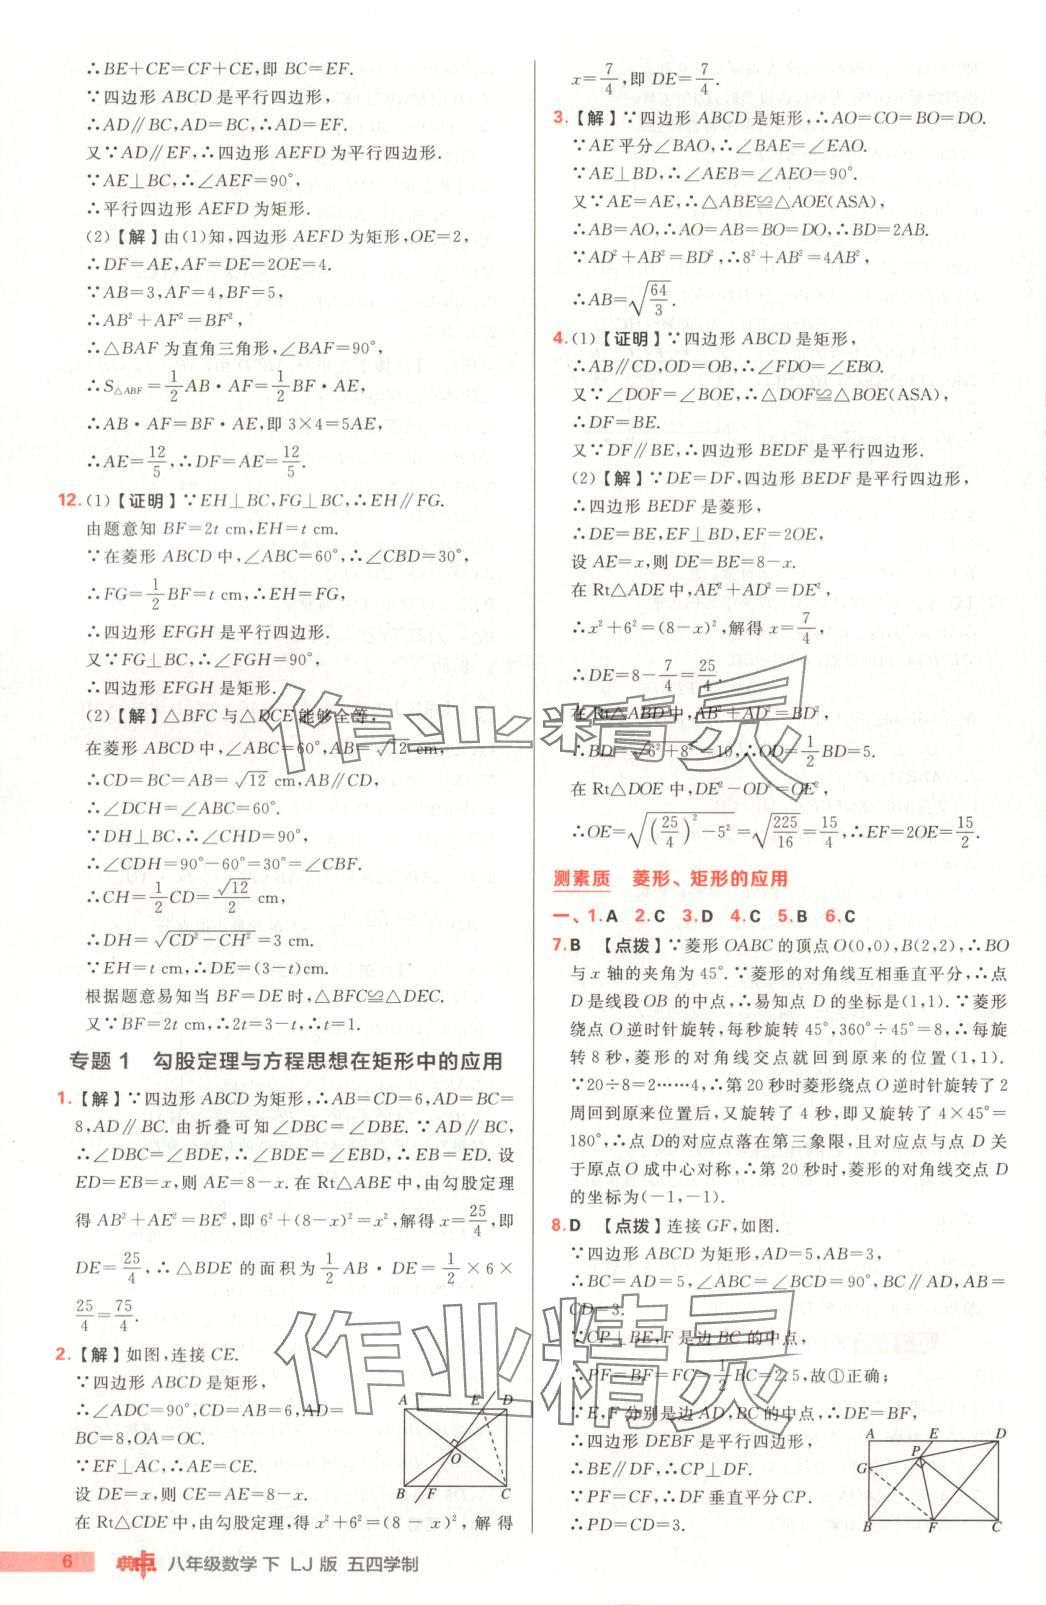 ∴BE+CE=CF+CE,即 BC=EF.
∵四边形 ABCD 是平行四边形,
∴AD∥BC,AD=BC,∴AD=EF.
又∵AD∥EF,∴四边形 AEFD 为平行四边形.
∵AE⊥BC,∴∠AEF=90°,
∴平行四边形 AEFD 为矩形.
(2)【解】由(1)知,四边形 AEFD 为矩形,OE=2,
∴DF=AE,AF=DE=2OE=4.
∵AB=3,AF=4,BF=5,
∴AB²+AF²=BF²,
∴△BAF 为直角三角形,∠BAF=90°,
∴S△ABF=1/2AB·AF=1/2BF·AE,
∴AB·AF=BF·AE,即 3×4=5AE,
∴AE=12/5,∴DF=AE=12/5.
12.(1)【证明】∵EH⊥BC,FG⊥BC,∴EH∥FG.
由题意知 BF=2t cm,EH=t cm.
∵在菱形 ABCD 中,∠ABC=60°,∴∠CBD=30°,
∴FG=1/2BF=t cm,∴EH=FG,
∴四边形 EFGH 是平行四边形.
又∵FG⊥BC,∴∠FGH=90°,
∴四边形 EFGH 是矩形.
(2)【解】△BFC 与△DCE 能够全等,
在菱形 ABCD 中,∠ABC=60°,AB=√12 cm,
∴CD=BC=AB=√12 cm,AB∥CD,
∴∠DCH=∠ABC=60°.
∵DH⊥BC,∴∠CHD=90°,
∴∠CDH=90°-60°=30°=∠CBF.
∴CH=1/2CD=√12/2 cm,
∴DH=√(CD²-CH²)=3 cm.
∵EH=t cm,∴DE=(3-t)cm.
根据题意易知当 BF=DE 时,△BFC≌△DEC.
又∵BF=2t cm,∴2t=3-t,∴t=1.
专题 1 勾股定理与方程思想在矩形中的应用
1.【解】∵四边形 ABCD 为矩形,∴AB=CD=6,AD=BC=
8,AD∥BC.由折叠可知∠DBC=∠DBE.∵AD∥BC,
∴∠DBC=∠BDE,∴∠BDE=∠EBD,∴EB=ED. 设
ED=EB=x,则 AE=8-x.在 Rt△ABE 中,由勾股定理
得 AB²+AE²=BE²,即 6²+(8-x)²=x²,解得 x=25/4,即
DE=25/4,∴△BDE 的面积为1/2AB·DE=1/2×6×
25/4=75/4.
2.【解】如图,连接 CE.
∵四边形 ABCD 是矩形,
∴∠ADC=90°,CD=AB=6,AD=
BC=8,OA=OC.
∵EF⊥AC,∴AE=CE.
设 DE=x,则 CE=AE=8-x.
在 Rt△CDE 中,由勾股定理,得 x²+6²=(8-x)²,解得
A E D
O
B F C
x=7/4,即 DE=7/4.
3.【解】∵四边形 ABCD 是矩形,∴AO=CO=BO=DO.
∵AE 平分∠BAO,∴∠BAE=∠EAO.
∵AE⊥BD,∴∠AEB=∠AEO=90°.
又∵AE=AE,∴△ABE≌△AOE(ASA),
∴AB=AO,∴AO=AB=BO=DO,∴BD=2AB.
∵AD²+AB²=BD²,∴8²+AB²=4AB²,
∴AB=√(64/3).
4.(1)【证明】∵四边形 ABCD 是矩形,
∴AB∥CD,OD=OB,∴∠FDO=∠EBO.
又∵∠DOF=∠BOE,∴△DOF≌△BOE(ASA),
∴DF=BE.
又∵DF∥BE,∴四边形 BEDF 是平行四边形.
(2)【解】∵DE=DF,四边形 BEDF 是平行四边形,
∴四边形 BEDF 是菱形,
∴DE=BE,EF⊥BD,EF=2OE,
设 AE=x,则 DE=BE=8-x.
在 Rt△ADE 中,AE²+AD²=DE²,
∴x²+6²=(8-x)²,解得 x=7/4,
∴DE=8-7/4=25/4.
在 Rt△ABD 中,AB²+AD²=BD²,
∴BD=√(6²+8²)=10,∴OD=1/2BD=5.
在 Rt△DOE 中,DE²-OD²=OE²,
∴OE=√((25/4)²-5²)=√(225/16)=15/4,∴EF=2OE=15/2.
测素质 菱形、矩形的应用
一、1.A 2.C 3.D 4.C 5.B 6.C
7.B 【点拨】∵菱形 OABC 的顶点 O(0,0),B(2,2),∴BO
与 x 轴的夹角为 45°.∵菱形的对角线互相垂直平分,∴点
D 是线段 OB 的中点,∴易知点 D 的坐标是(1,1).∵菱形
绕点 O 逆时针旋转,每秒旋转 45°,360°÷45°=8,∴每旋
转 8 秒,菱形的对角线交点就回到原来的位置(1,1).
∵20÷8=2……4,∴第 20 秒时菱形绕点 O 逆时针旋转了 2
周回到原来位置后,又旋转了 4 秒,即又旋转了 4×45°=
180°,∴点 D 的对应点落在第三象限,且对应点与点 D 关
于原点 O 成中心对称,∴第 20 秒时,菱形的对角线交点 D
的坐标为(-1,-1).
8.D 【点拨】连接 GF,如图.
∵四边形 ABCD 为矩形,AD=5,AB=3,
∴BC=AD=5,∠ABC=∠BCD=90°,BC∥AD,AB=
CD=3.
∵CP⊥BE,F 是边 BC 的中点,
∴PF=BF=FC=1/2BC=2.5,故①正确;
∵E,F 分别是边 AD,BC 的中点,∴DE=BF,
∴四边形 DEBF 是平行四边形,
∴BE∥DF,∴CP⊥DF.
∵PF=CF,∴DF 垂直平分 CP.
∴PD=CD=3.
A E D
P
G
B F C
作业精灵
作业精灵
6 典中点 八年级数学 下 LJ 版 五四学制